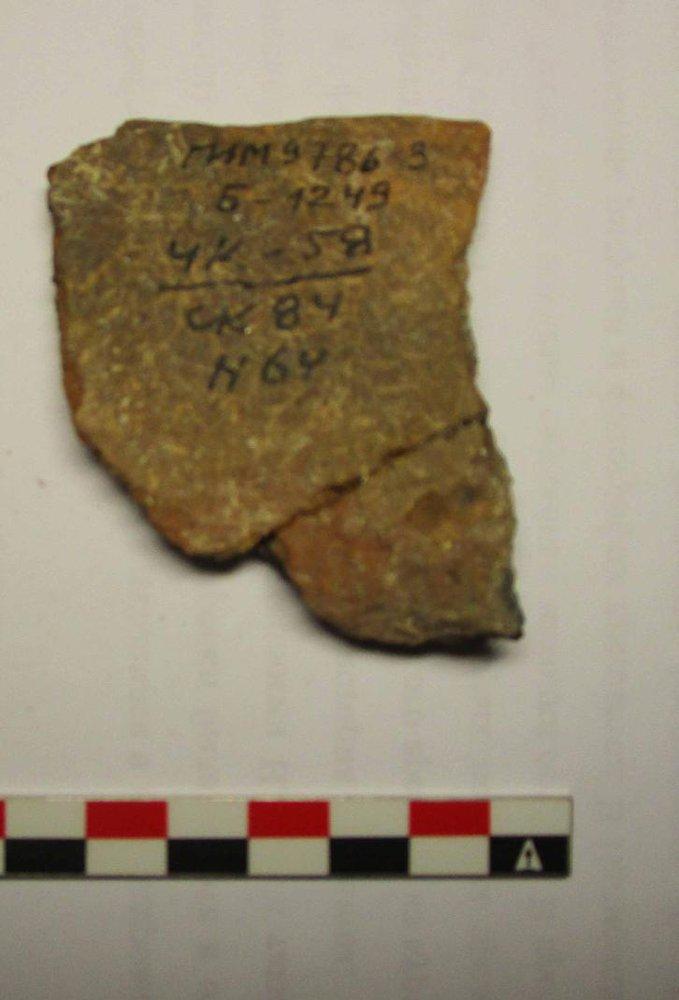 ГИМ 97863
Б-1249
ЧК-58
СК 84
N 64